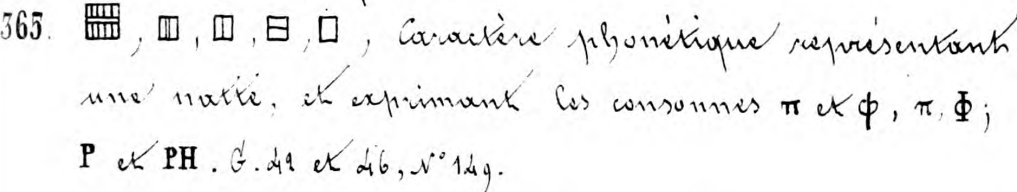 365. 𓊪, 𓊪, 𓊪, 𓊪, 𓊪, Caractère phonétique représentant
une natte, et exprimant les consonnes π et ϕ, π, Φ;
P et PH. G. 42 et 46, N° 149.